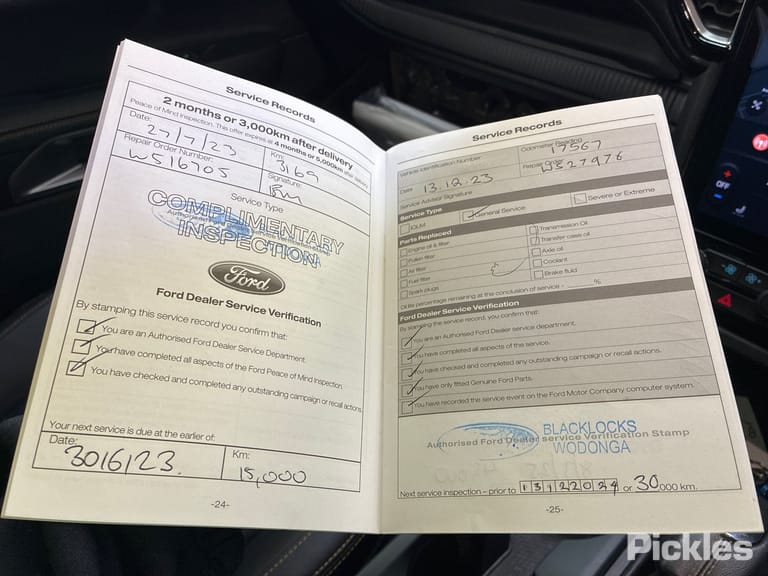 Service Records
2 months or 3,000km after delivery
Peace of Mind inspection. This offer expires at 4 months or 5,000km after delivery
Date:
27/7/23
Km:
3169
Repair Order Number:
W516705
Signature:
Service Type
COMPLIMENTARY
INSPECTION
Ford
Ford Dealer Service Verification
By stamping this service record you confirm that:
You are an Authorised Ford Dealer Service Department.
You have completed all aspects of the Ford Peace of Mind Inspection.
You have checked and completed any outstanding campaign or recall actions
Your next service is due at the earlier of:
Date:
3016/23.
Km:
15,000
-24-
Service Records
Vehicle Identification Number
Odometer Reading
17567
Date 13.12.23
Repair Order
W527976
Service Advisor Signature
Service Type
IOLM
General Service
Severe or Extreme
Parts Replaced
Engine oil & filter
Pollen filter
Air filter
Fuel filter
Spark plugs
Transmission Oil
Transfer case oil
Axle oil
Coolant
Brake fluid
Oil life percentage remaining at the conclusion of service - %
Ford Dealer Service Verification
By stamping this service record, you confirm that:
You are an Authorised Ford Dealer service department.
You have completed all aspects of the service.
You have checked and completed any outstanding campaign or recall actions.
You have only fitted Genuine Ford Parts.
You have recorded the service event on the Ford Motor Company computer system.
BLACKLOCKS
WODONGA
Authorised Ford Dealer service Verification Stamp
Next service inspection – prior to 13122024 or 30,000 km.
-25-
OFF
Pickles